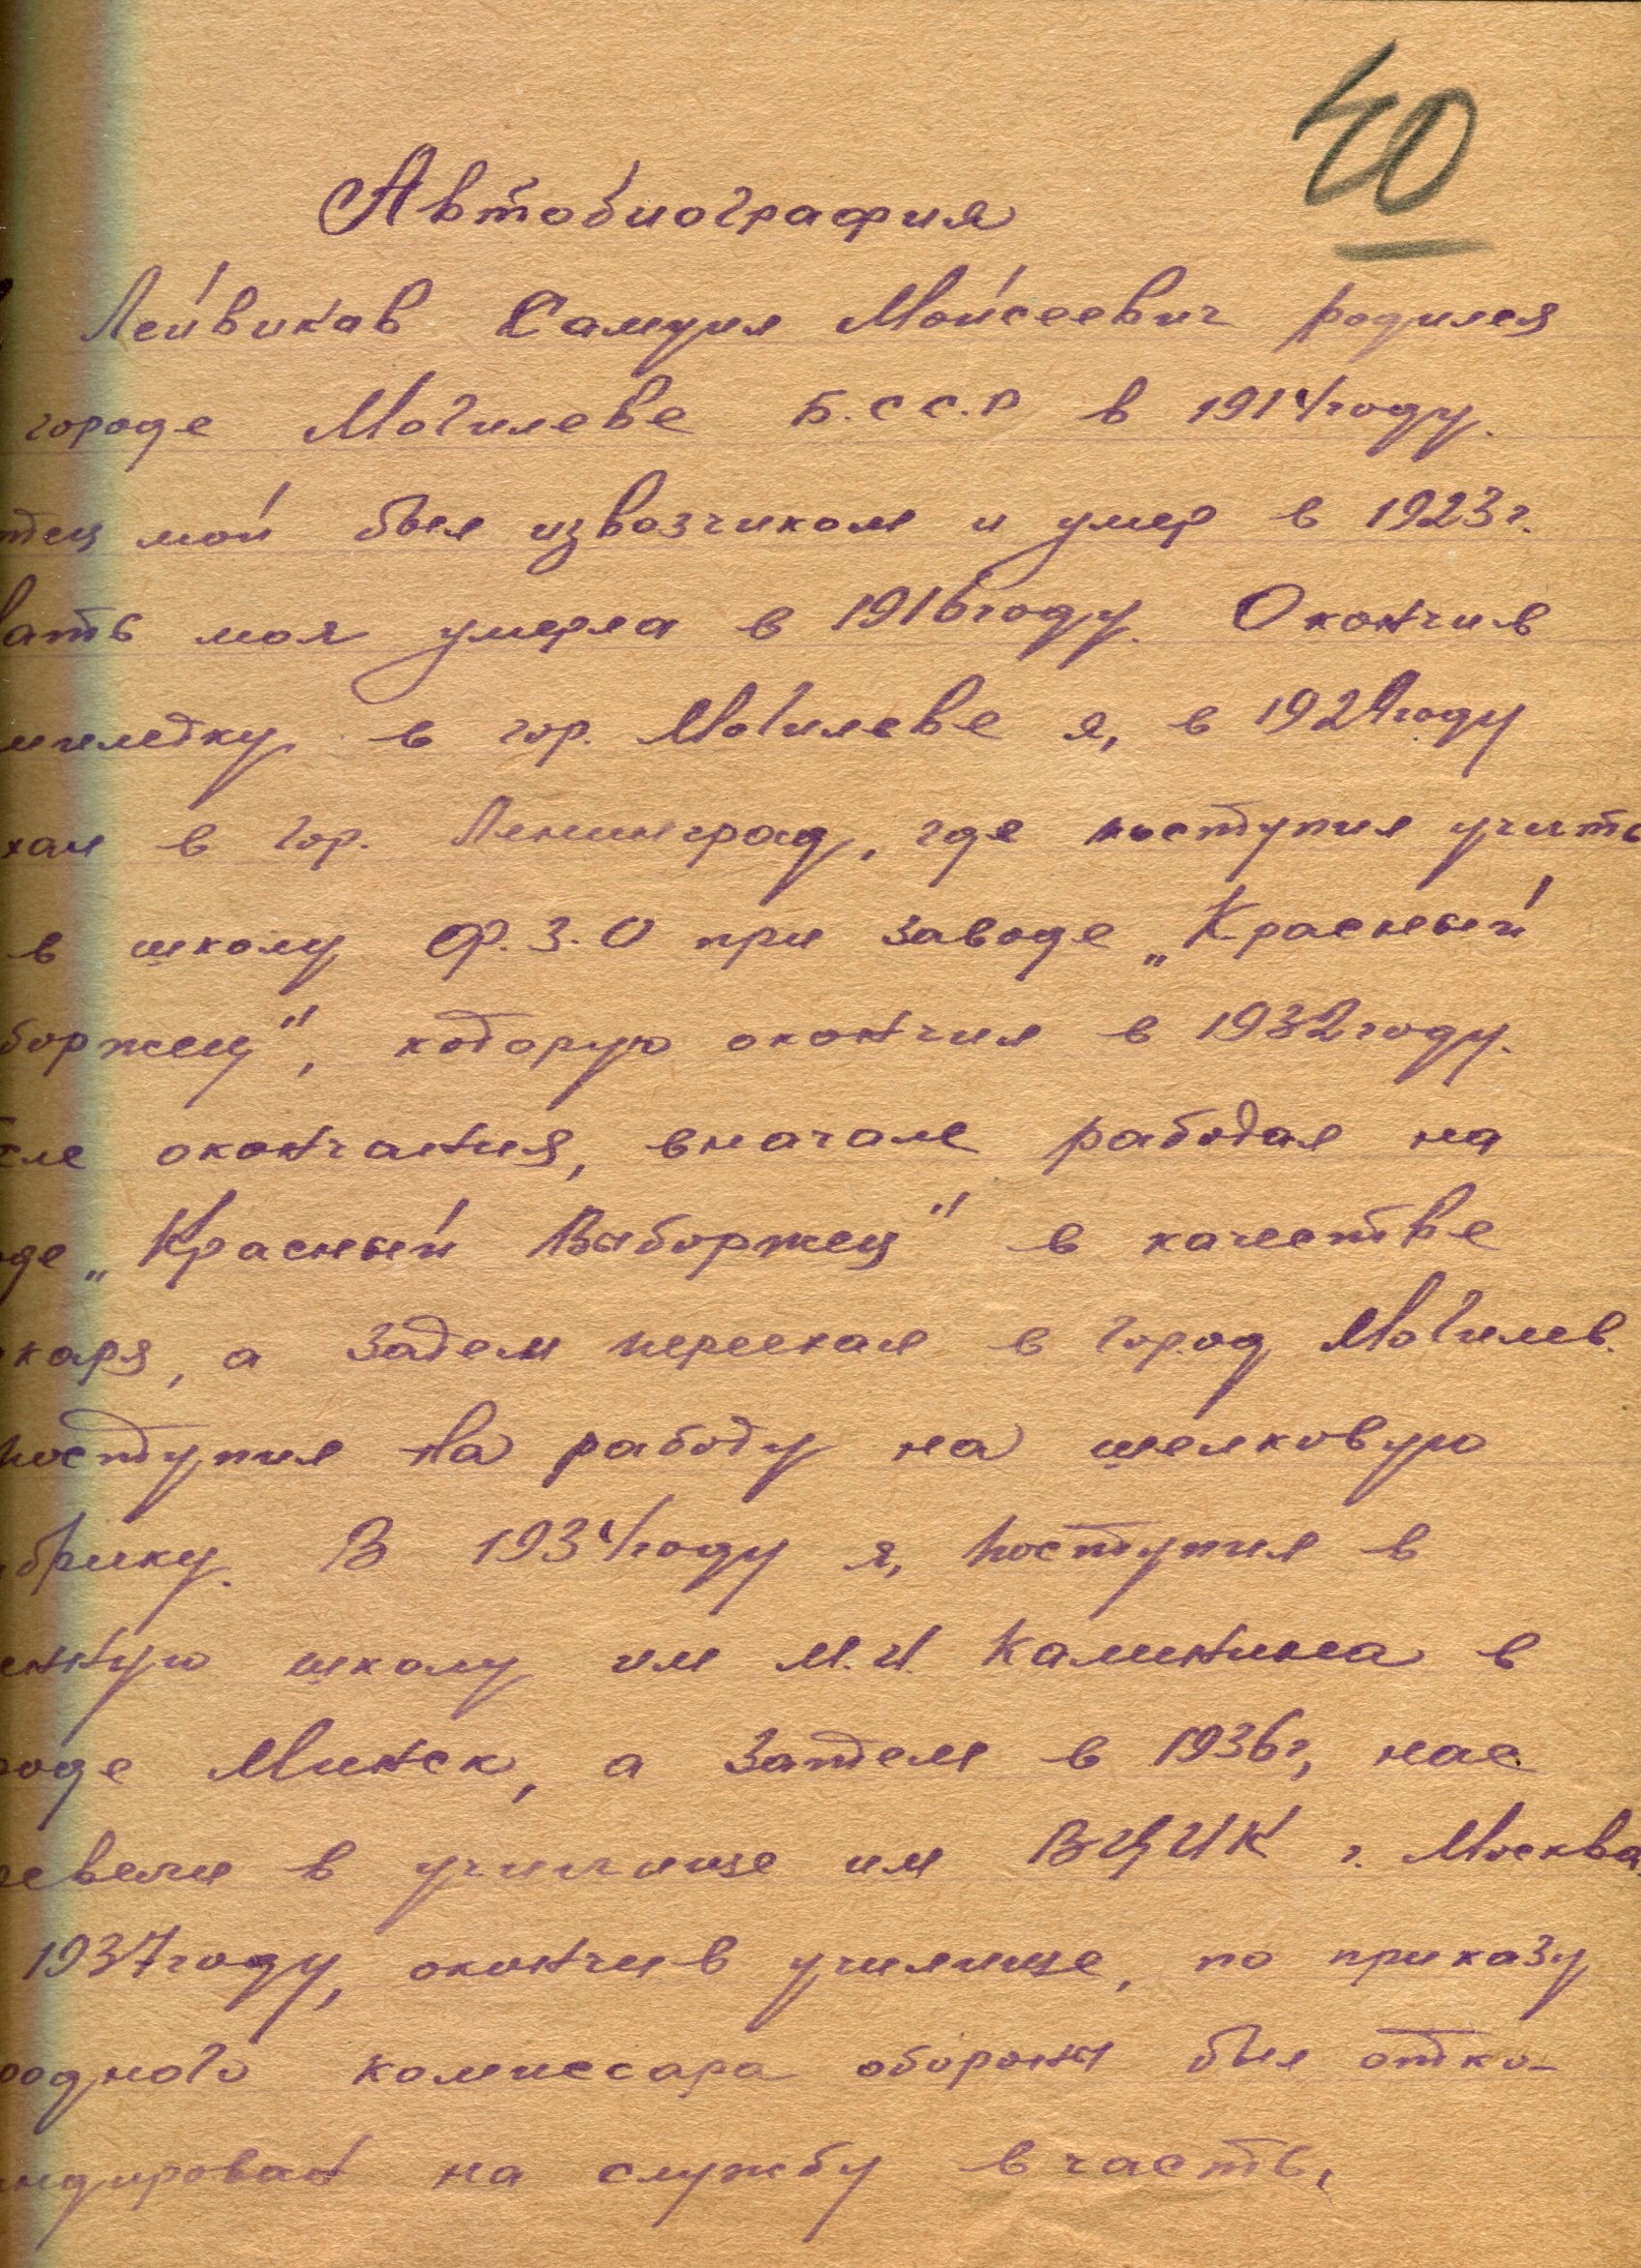 40
Автобиография
Лейвиков Самуил Моисеевич родился
городе Могилеве Б.С.С.Р в 1914 году.
тец мой был извозчиком и умер в 1923 г.
ать моя умерла в 1916 году. Окончив
милетку в гор. Могилеве я, в 1929 году
хал в гор. Ленинград, где поступил учить
в школу Ф.З.О при заводе „Красный
боржец", которую окончил в 1932 году.
сле окончания, вначале работал на
оде „Красный Выборжец" в качестве
каря, а затем переехал в город Могилев.
поступил на работу на шелковую
брику. В 1934 году я, поступил в
енную школу им М.И. Калинина в
роде Минск, а затем в 1936 г, нас
евели в училище им ВЦИК г. Москва
1937 году, окончив училище, по приказу
родного комиссара обороны был отко-
ндирован на службу в часть,